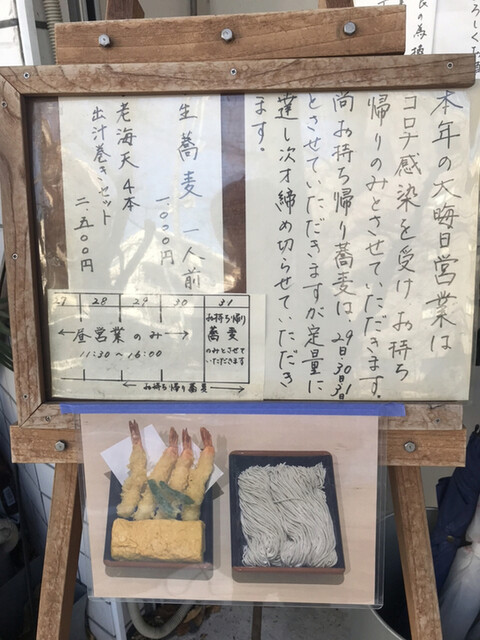 本年の大晦日営業は
コロナ感染を受けお持ち
帰りのみとさせていただきます。
尚お持ち帰り蕎麦は、29日、30日、31日
とさせていただきますが定量に
達し次才締め切らせていただき
ます。
生蕎麦 一人前
1000円
老海天 4本
出汁巻きセット
二、五00円
27 28 29 30 31
←昼営業のみ→
11:30〜16:00
お持ち帰り
蕎麦
のみとさせて
いただきます
←お持ち帰り蕎麦→